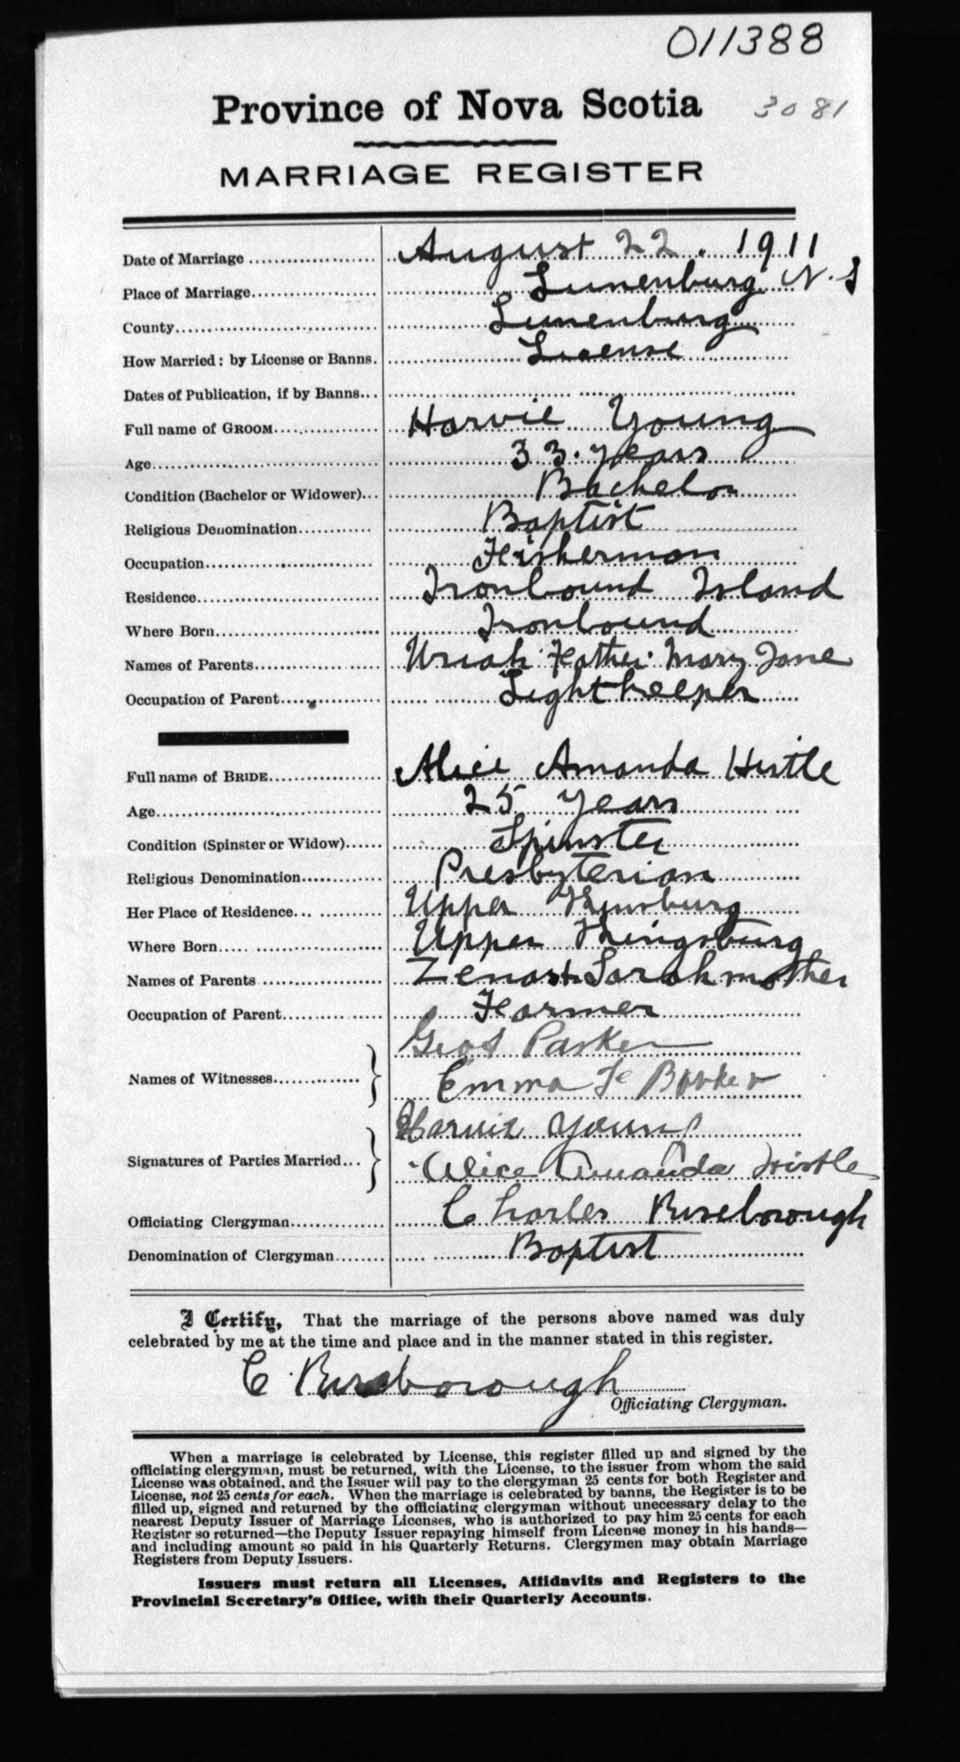 011388
Province of Nova Scotia 3081
MARRIAGE REGISTER
Date of Marriage August 22. 1911
Place of Marriage Lunenburg N.S
County Lunenburg
How Married: by License or Banns. License
Dates of Publication, if by Banns
Full name of GROOM Harvie Young
Age 33. years
Condition (Bachelor or Widower) Bachelor
Religious Denomination Baptist
Occupation Fisherman
Residence Ironbound Island
Where Born Ironbound
Names of Parents Uriah Father Mary Jane
Occupation of Parent Lightkeeper
Full name of BRIDE Alice Amanda Hirtle
Age 25 years
Condition (Spinster or Widow) Spinster
Religious Denomination Presbyterian
Her Place of Residence Upper
Where Born Upper Kingsburg
Names of Parents Zenas + Sarah mother
Occupation of Parent Farmer
Names of Witnesses Parker
Emma
Signatures of Parties Married Harvie Young
Alice Amanda Hirtle
Officiating Clergyman Charles
Denomination of Clergyman Baptist
I Certify, That the marriage of the persons above named was duly
celebrated by me at the time and place and in the manner stated in this register.
C
Officiating Clergyman.
When a marriage is celebrated by License, this register filled up and signed by the
officiating clergyman, must be returned, with the License, to the issuer from whom the said
License was obtained, and the Issuer will pay to the clergyman 25 cents for both Register and
License, not 25 cents for each. When the marriage is celebrated by banns, the Register is to be
filled up, signed and returned by the officiating clergyman without unecessary delay to the
nearest Deputy Issuer of Marriage Licenses, who is authorized to pay him 25 cents for each
Register so returned—the Deputy Issuer repaying himself from License money in his hands—
and including amount so paid in his Quarterly Returns. Clergymen may obtain Marriage
Registers from Deputy Issuers.
Issuers must return all Licenses, Affidavits and Registers to the
Provincial Secretary's Office, with their Quarterly Accounts.